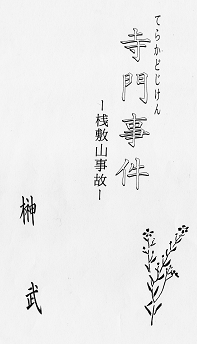 てらかどじけん
寺門事件
ー桟敷山事故ー
榊武